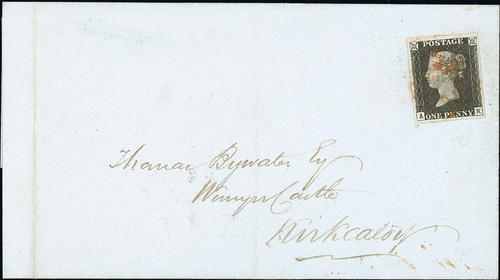 POSTAGE
A K
ONE PENNY
Thomas Bywater Esq
Wemyss Castle
Kirkcaldy